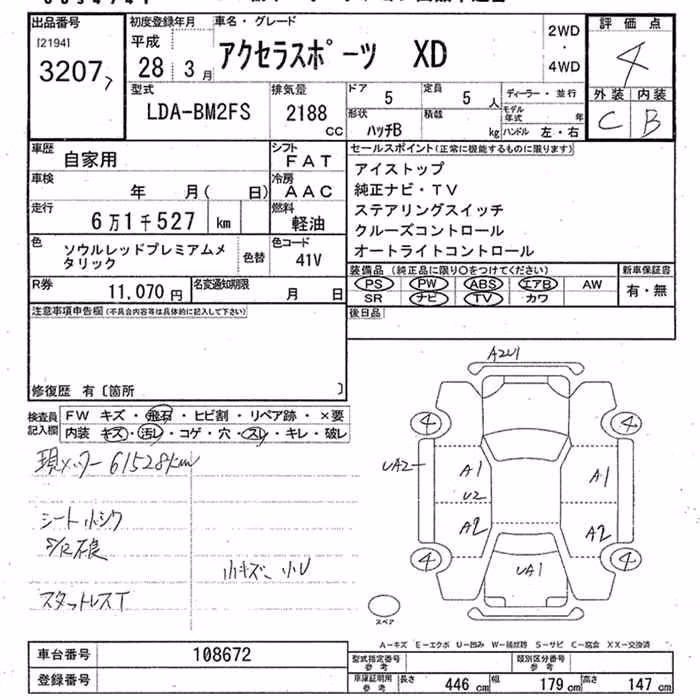 出品番号
[2194]
3207
初度登録年月
平成
28 3月
車名・グレード
アクセラスポーツ XD
2WD
・
4WD
評価点
4
外装 内装
C B
型式
LDA-BM2FS
排気量
2188
CC
ドア
5
定員
5 人
形状
ハッチB
積載
kg
ディーラー・並行
モデル年式 年
ハンドル 左・右
車歴
自家用
シフト
FAT
車検
年 月( 日)
冷房
AAC
走行
6万1千527 km
燃料
軽油
色
ソウルレッドプレミアムメタリック
色替
色コード
41V
R券
11,070円
名変通知期限
月 日
セールスポイント(正常に機能するものに限ります)
アイストップ
純正ナビ・TV
ステアリングスイッチ
クルーズコントロール
オートライトコントロール
装備品(純正品に限り○をつけてください)
PS PW ABS エアB AW
SR ナビ TV カワ
新車保証書
有・無
後日品
注意事項申告欄(不具合内容等は具体的に記入して下さい)
修復歴 有〔箇所 〕
検査員記入欄
FW キズ・飛石・ヒビ割・リペア跡・×要
内装 キズ・汚レ・コゲ・穴・スレ・キレ・破レ
現メーター61528km
シート小シワ
小キズ、小U
スタットレスT
A2U1
4
4
UA2
A1
U2
A1
A2
A2
4
4
UA1
スペア
A-キズ E-エクボ U-凹み W-補修跡 S-サビ C-腐食 XX-交換済
車台番号
108672
登録番号
型式指定番号
参考
類別区分番号
参考
車庫証明用
参考
長さ 446cm
幅 179cm
高さ 147cm